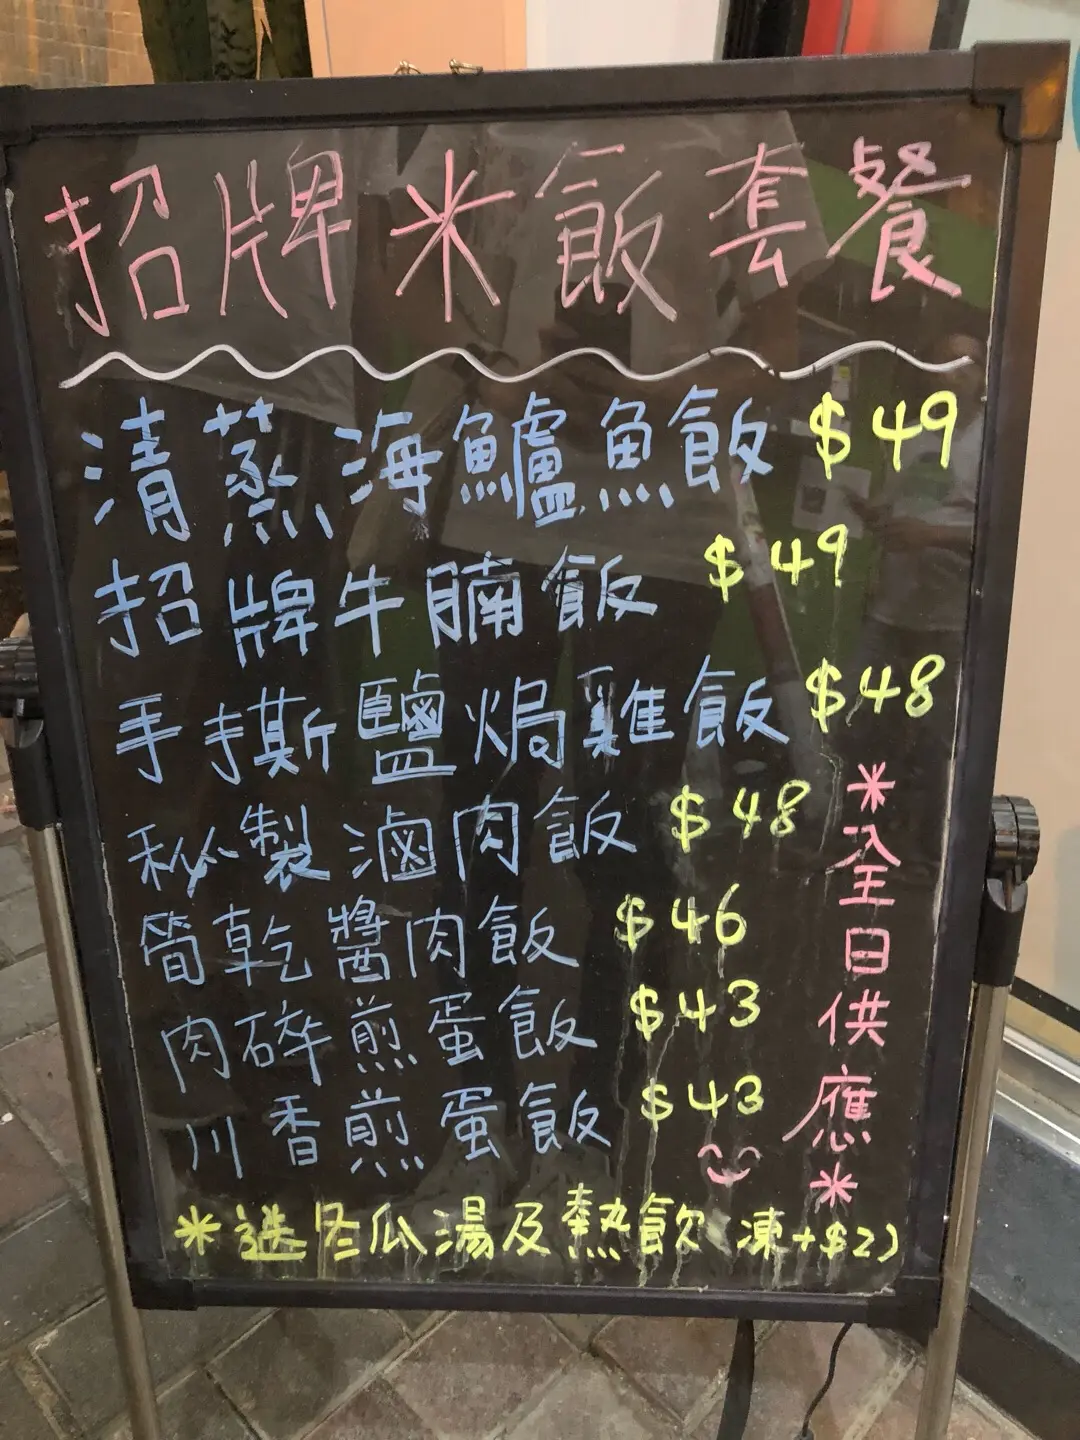 招牌米飯套餐
清蒸海鱸魚飯 $49
招牌牛腩飯 $49
手撕鹽焗雞飯 $48
秘製滷肉飯 $48
筒乾醬肉飯 $46
肉碎煎蛋飯 $43
川香煎蛋飯 $43
*全日供應*
*送冬瓜湯及熱飲 凍+$2)